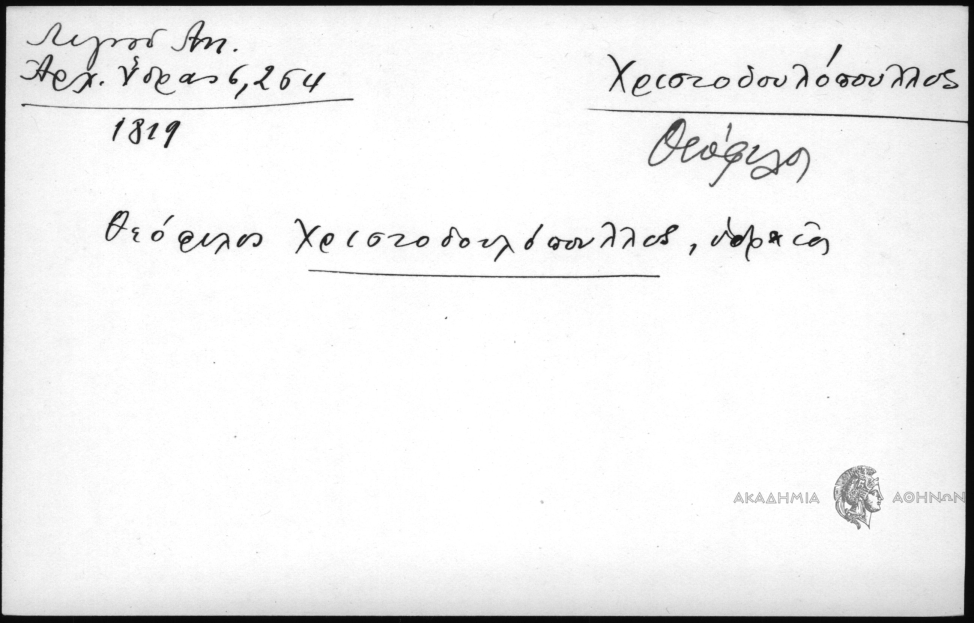 Λιγνοῦ Ἀντ.
Ἀρχ. Ὕδρας 6, 254
1819
Χριστοδουλόπουλλος
Θεόφιλος
Θεόφιλος Χριστοδουλόπουλλος,
ΑΚΑΔΗΜΙΑ ΑΘΗΝΩΝ